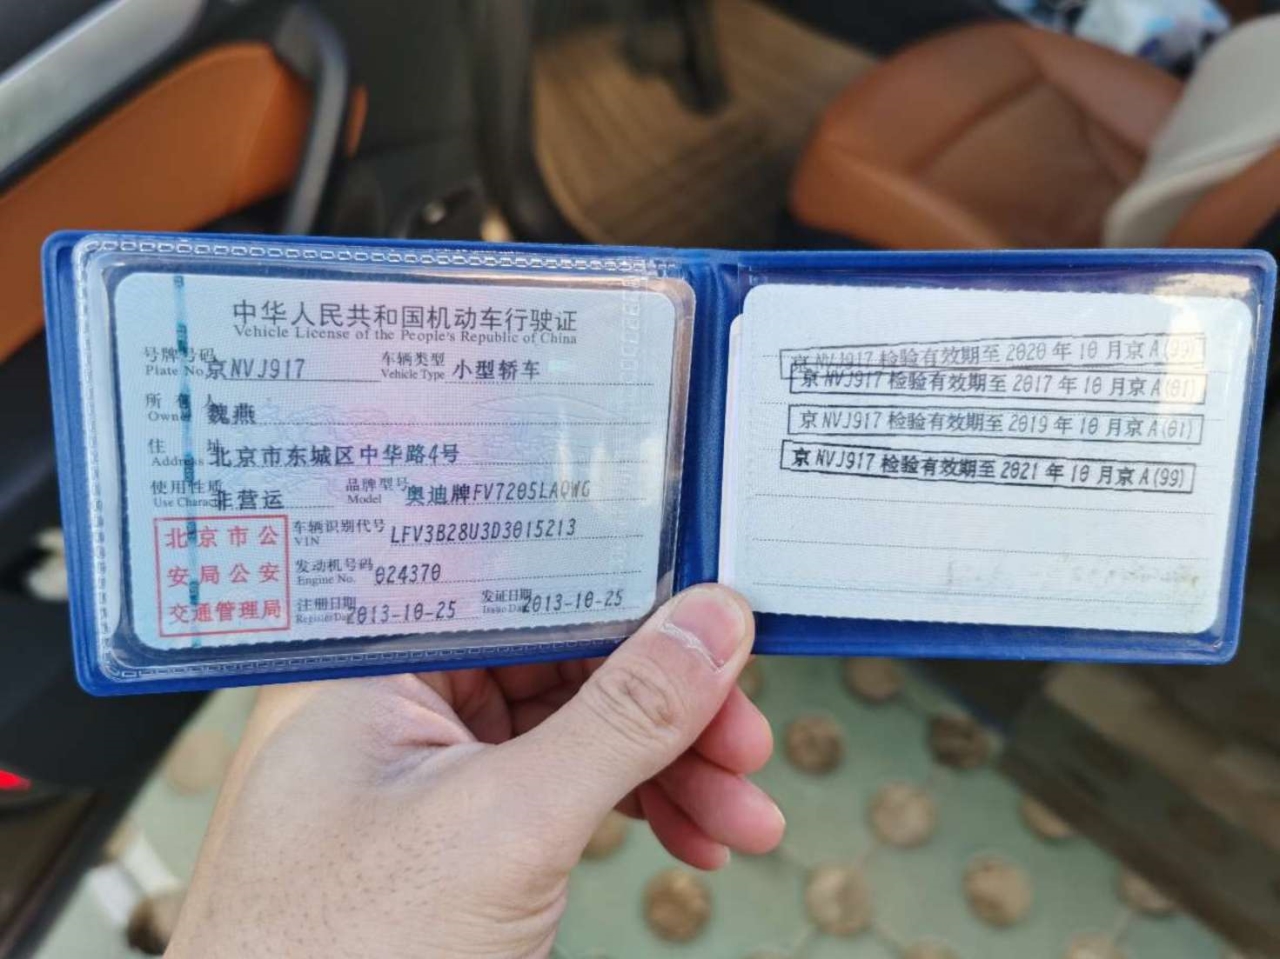 中华人民共和国机动车行驶证
Vehicle License of the People's Republic of China
号牌号码 京NVJ917 车辆类型 小型轿车
Plate No. Vehicle Type
所有人 魏燕
Owner
住址 北京市东城区中华路4号
Address
使用性质 非营运 品牌型号 奥迪牌FV7205LAQWG
Use Charac Model
北京市公
安局公安
交通管理局
车辆识别代号 LFV3B28U3D3015213
VIN
发动机号码 024370
Engine No.
注册日期 2013-10-25 发证日期 2013-10-25
Register Da Issue Da
京NVJ917 检验有效期至 2020 年 10 月京 A(99)
京 NVJ917 检验有效期至 2017 年 10 月京 A(01)
京 NVJ917 检验有效期至 2019 年 10 月京 A(01)
京 NVJ917 检验有效期至 2021 年 10 月京 A(99)